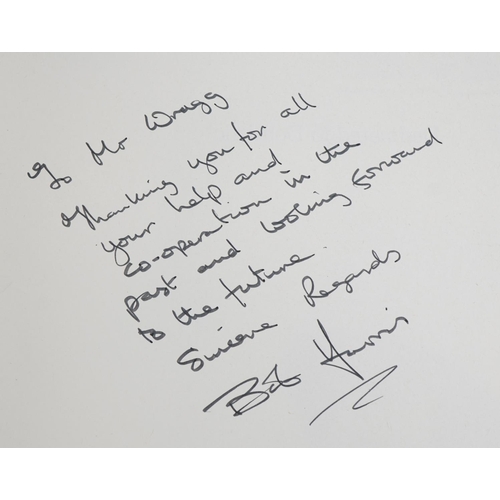 To Mr Wragg
Thanking you for all
your help and
co-operation in the
past and looking forward
to the future.
Sincere Regards
Bob Harris